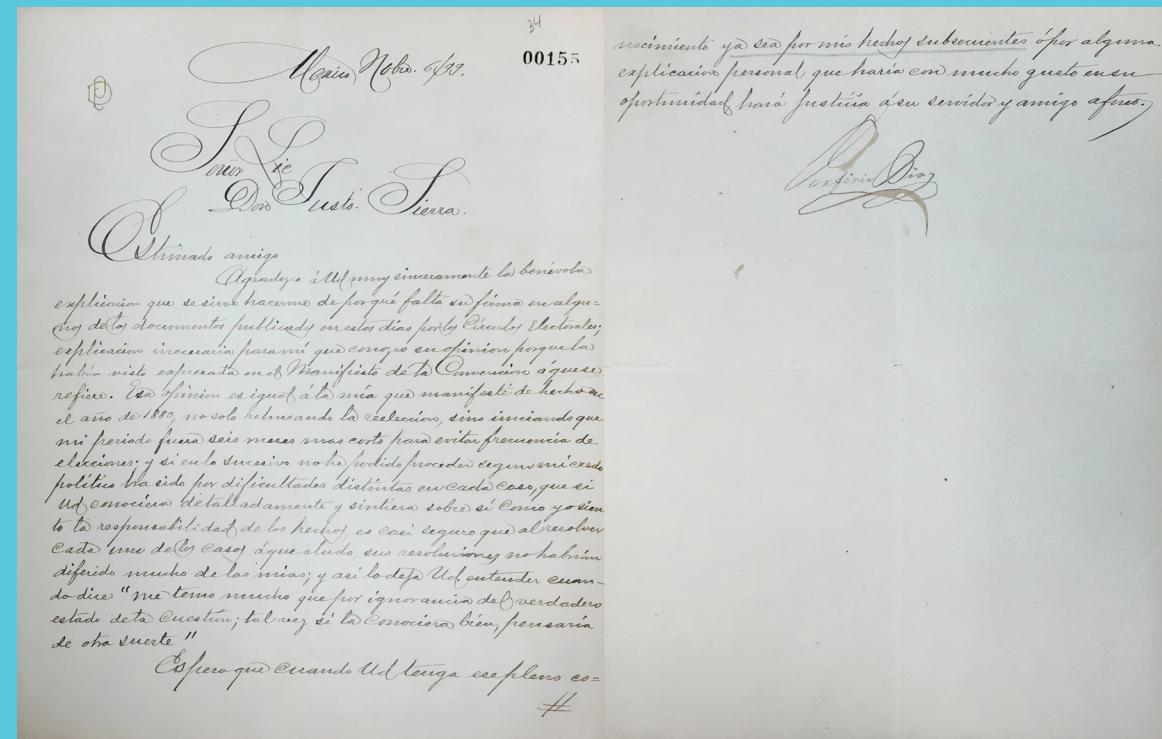 34
00155
Mexico Nobre. 6/99.
PD
Señor Lic
Don Justo. Sierra.
Estimado amigo
Agradezco á Ud muy sinceramente la benévola
explicacion que se sirve hacerme de por qué falta su firma en algu=
nos de los documentos publicados en estos dias por los Círculos Electorales;
explicacion inecesaria para mí que conozco su opinion porque la
habia visto expresata en el Manifiesto de la Convencion á que se
refiere. Esa opinion es igual á la mía que manifesté de hecho en
el año de 1880, no solo rehusando la reeleccion, sino iniciando que
mi periodo fuera seis meses mas corto para evitar frecuencia de
elecciones; y si en lo sucesivo no he podido proceder segun mi credo
político ha sido por dificultades distintas en cada caso, que si
Ud conociera detalladamente y sintiera sobre sí como yo sien
to la responsabilidad de los hechos, es casi seguro que al resolver
cada uno de los casos á que aludo, sus resoluciones no habrian
diferido mucho de las mias; y asi lo deja Ud. entender cuan-
do dice "me temo mucho que por ignorancia del verdadero
estado de la cuestion; tal vez si la conociera bien, pensaria
de otra suerte"
Espero que cuando Ud tenga ese pleno co=
#
nocimiento ya sea por mis hechos subsecuentes ó por alguna
explicacion personal que haría con mucho gusto en su
oportunidad, hará justicia á su servidor y amigo afmo.
Porfirio Diaz